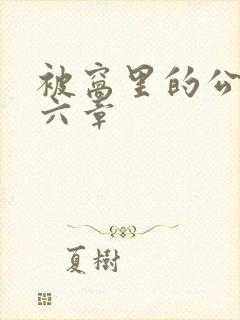 被窝里的公
六章
夏樹